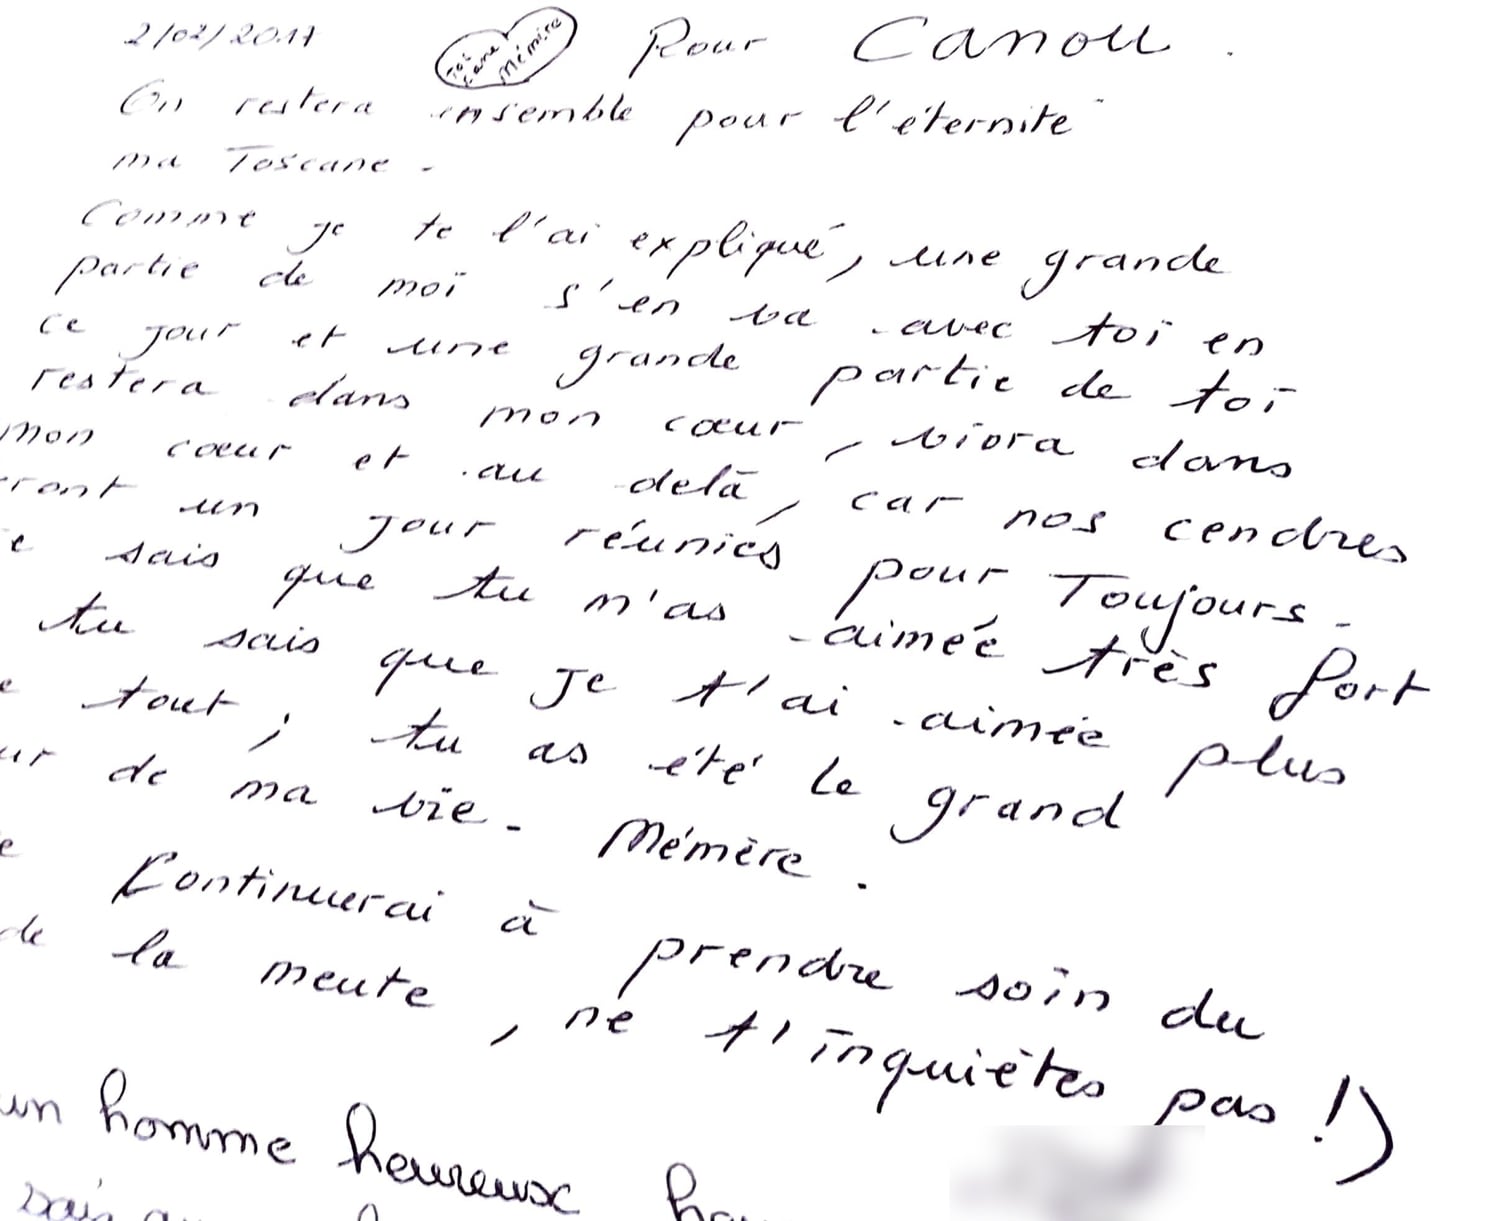 2/02/2017
Toi Cane Mémère
Pour Canou.
On restera ensemble pour l'éternité
ma Toscane -
Comme je te l'ai expliqué, une grande
partie de moi s'en va avec toi en
ce jour et une grande partie de toi
restera dans mon cœur, vivra dans
mon cœur et au delà, car nos cendres
ront un jour réunies pour Toujours -
e sais que tu m'as aimée très fort
tu sais que je t'ai aimée plus
e tout, tu as été le grand
ur de ma vie - Mémère.
e Continuerai à prendre soin du
de la meute, ne t'inquiètes pas !)
un homme heureux